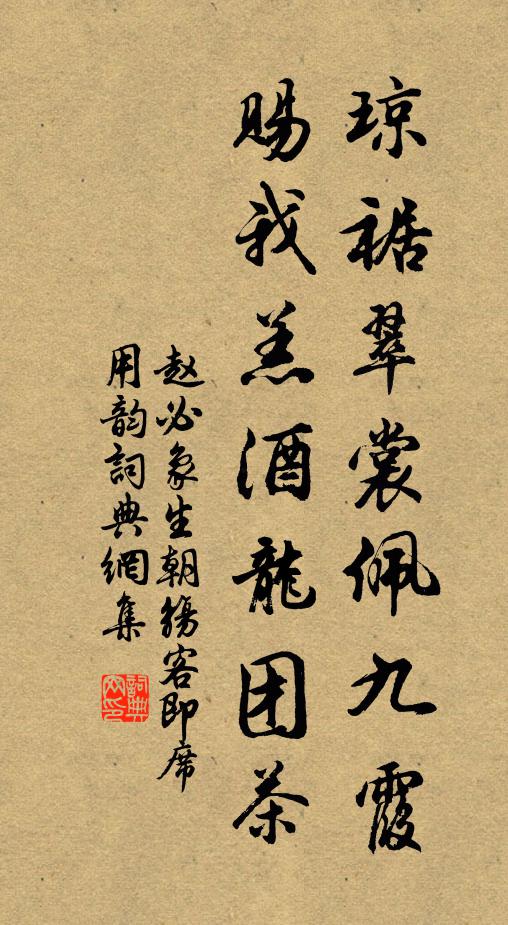 琼裾翠裳佩九霞
赐我羔酒龙团茶
赵必象生朝觞客即席
用韵词典网集
词典网印